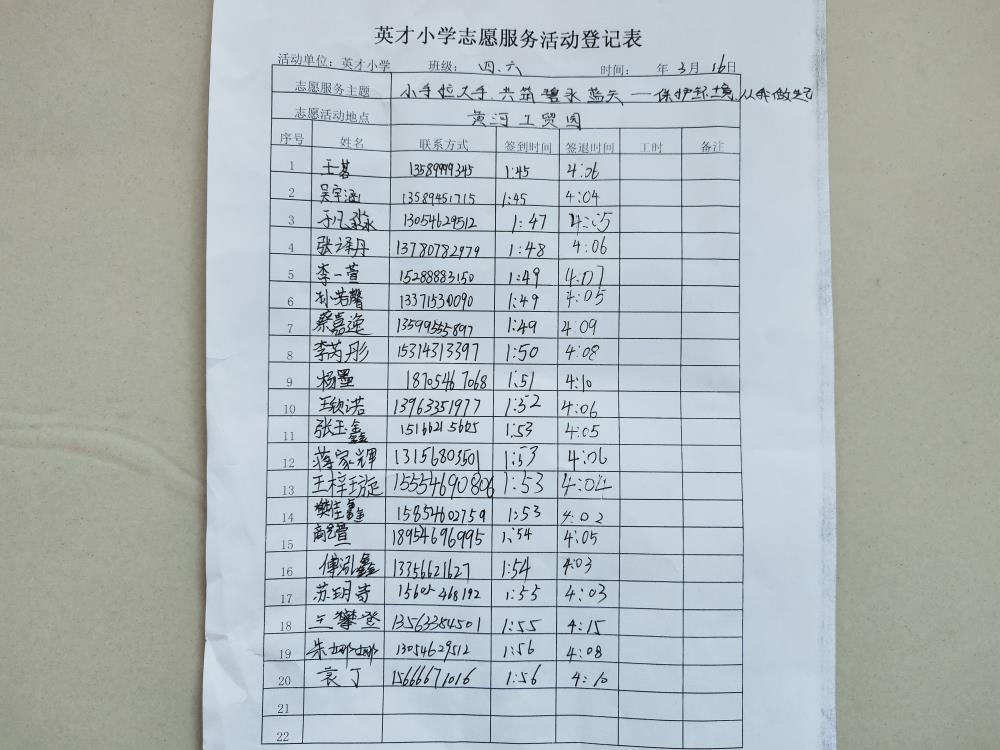 英才小学志愿服务活动登记表
活动单位: 英才小学 班级: 四.六 时间: 年 3月 16日
志愿服务主题 小手拉大手.共筑碧水蓝天——保护环境,从我做起
志愿活动地点 黄河工贸园
序号 姓名 联系方式 签到时间 签退时间 工时 备注
1 王茗 13589999345 1:45 4:06
2 吴宇涵 13589451715 1:45 4:04
3 于凡淼 13054629512 1:47 4:05
4 张译丹 13780782979 1:48 4:06
5 李一萱 15288883150 1:49 4:07
6 孙若馨 13371530090 1:49 4:05
7 蔡嘉逸 13599555897 1:49 4:09
8 李芮彤 15314313397 1:50 4:08
9 杨墨 18705467068 1:51 4:10
10 王欣诺 13963351977 1:52 4:06
11 张玉鑫 1:53 4:05
12 蒋家辉 13156803501 1:53 4:06
13 王梓璇 15554690806 1:53 4:04
14 樊佳鑫 15854602759 1:53 4:02
15 18954696995 1:54 4:05
16 傅泓鑫 13356621627 1:54 4:03
17 苏玥奇 15605468192 1:55 4:03
18 王攀登 13563384501 1:55 4:15
19 朱娜娜 13054629512 1:56 4:08
20 袁丁 15666671016 1:56 4:10
21
22